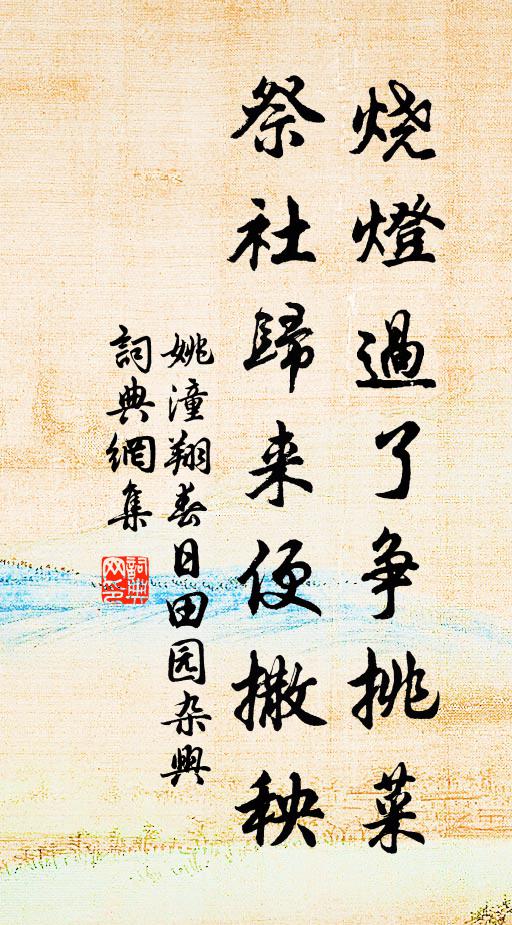 烧燈過了争挑菜
祭社歸来便撒秧
姚潼翔春日田园杂興
詞典網集
詞典